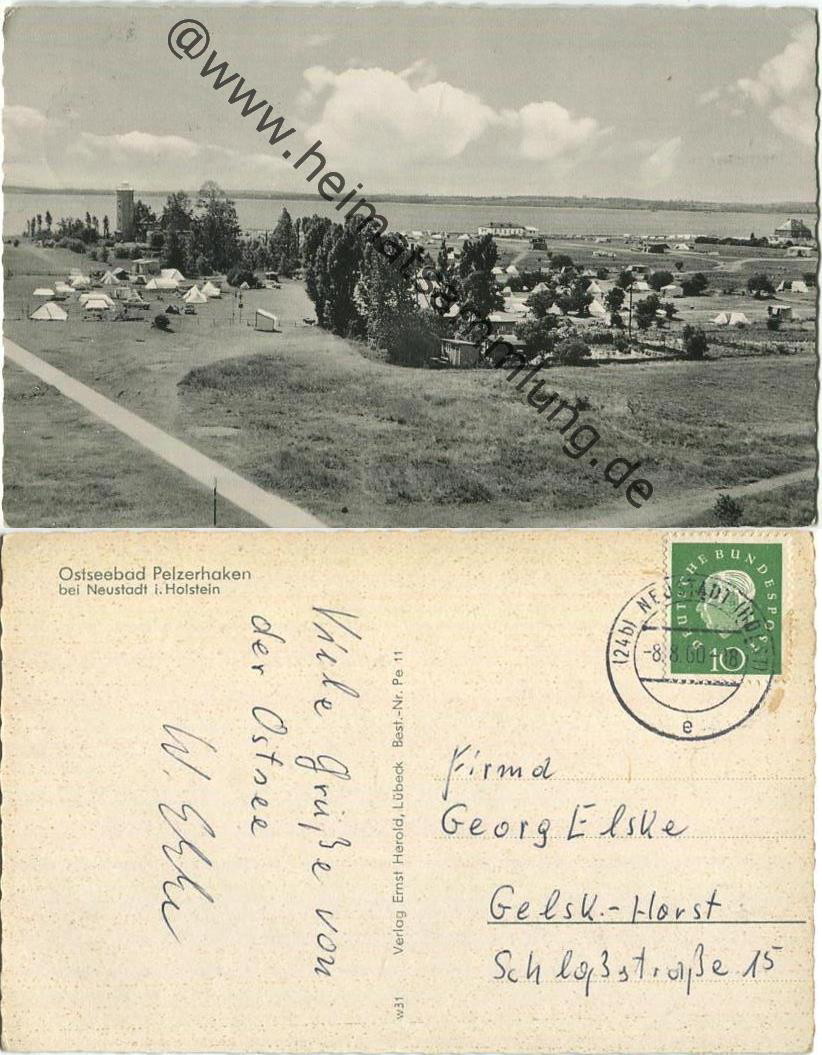 @www.heimatsammlung.de
Ostseebad Pelzerhaken
bei Neustadt i. Holstein
Viele Grüße von
der Ostsee
Verlag Ernst Herold, Lübeck Best.-Nr. Pe 11
w31
DEUTSCHE BUNDESPOST
10
(24b) NEUSTADT (HOLST)
-8.8.60-18
e
Firma
Georg Elske
Gelsk.-Horst
Schloßstraße 15